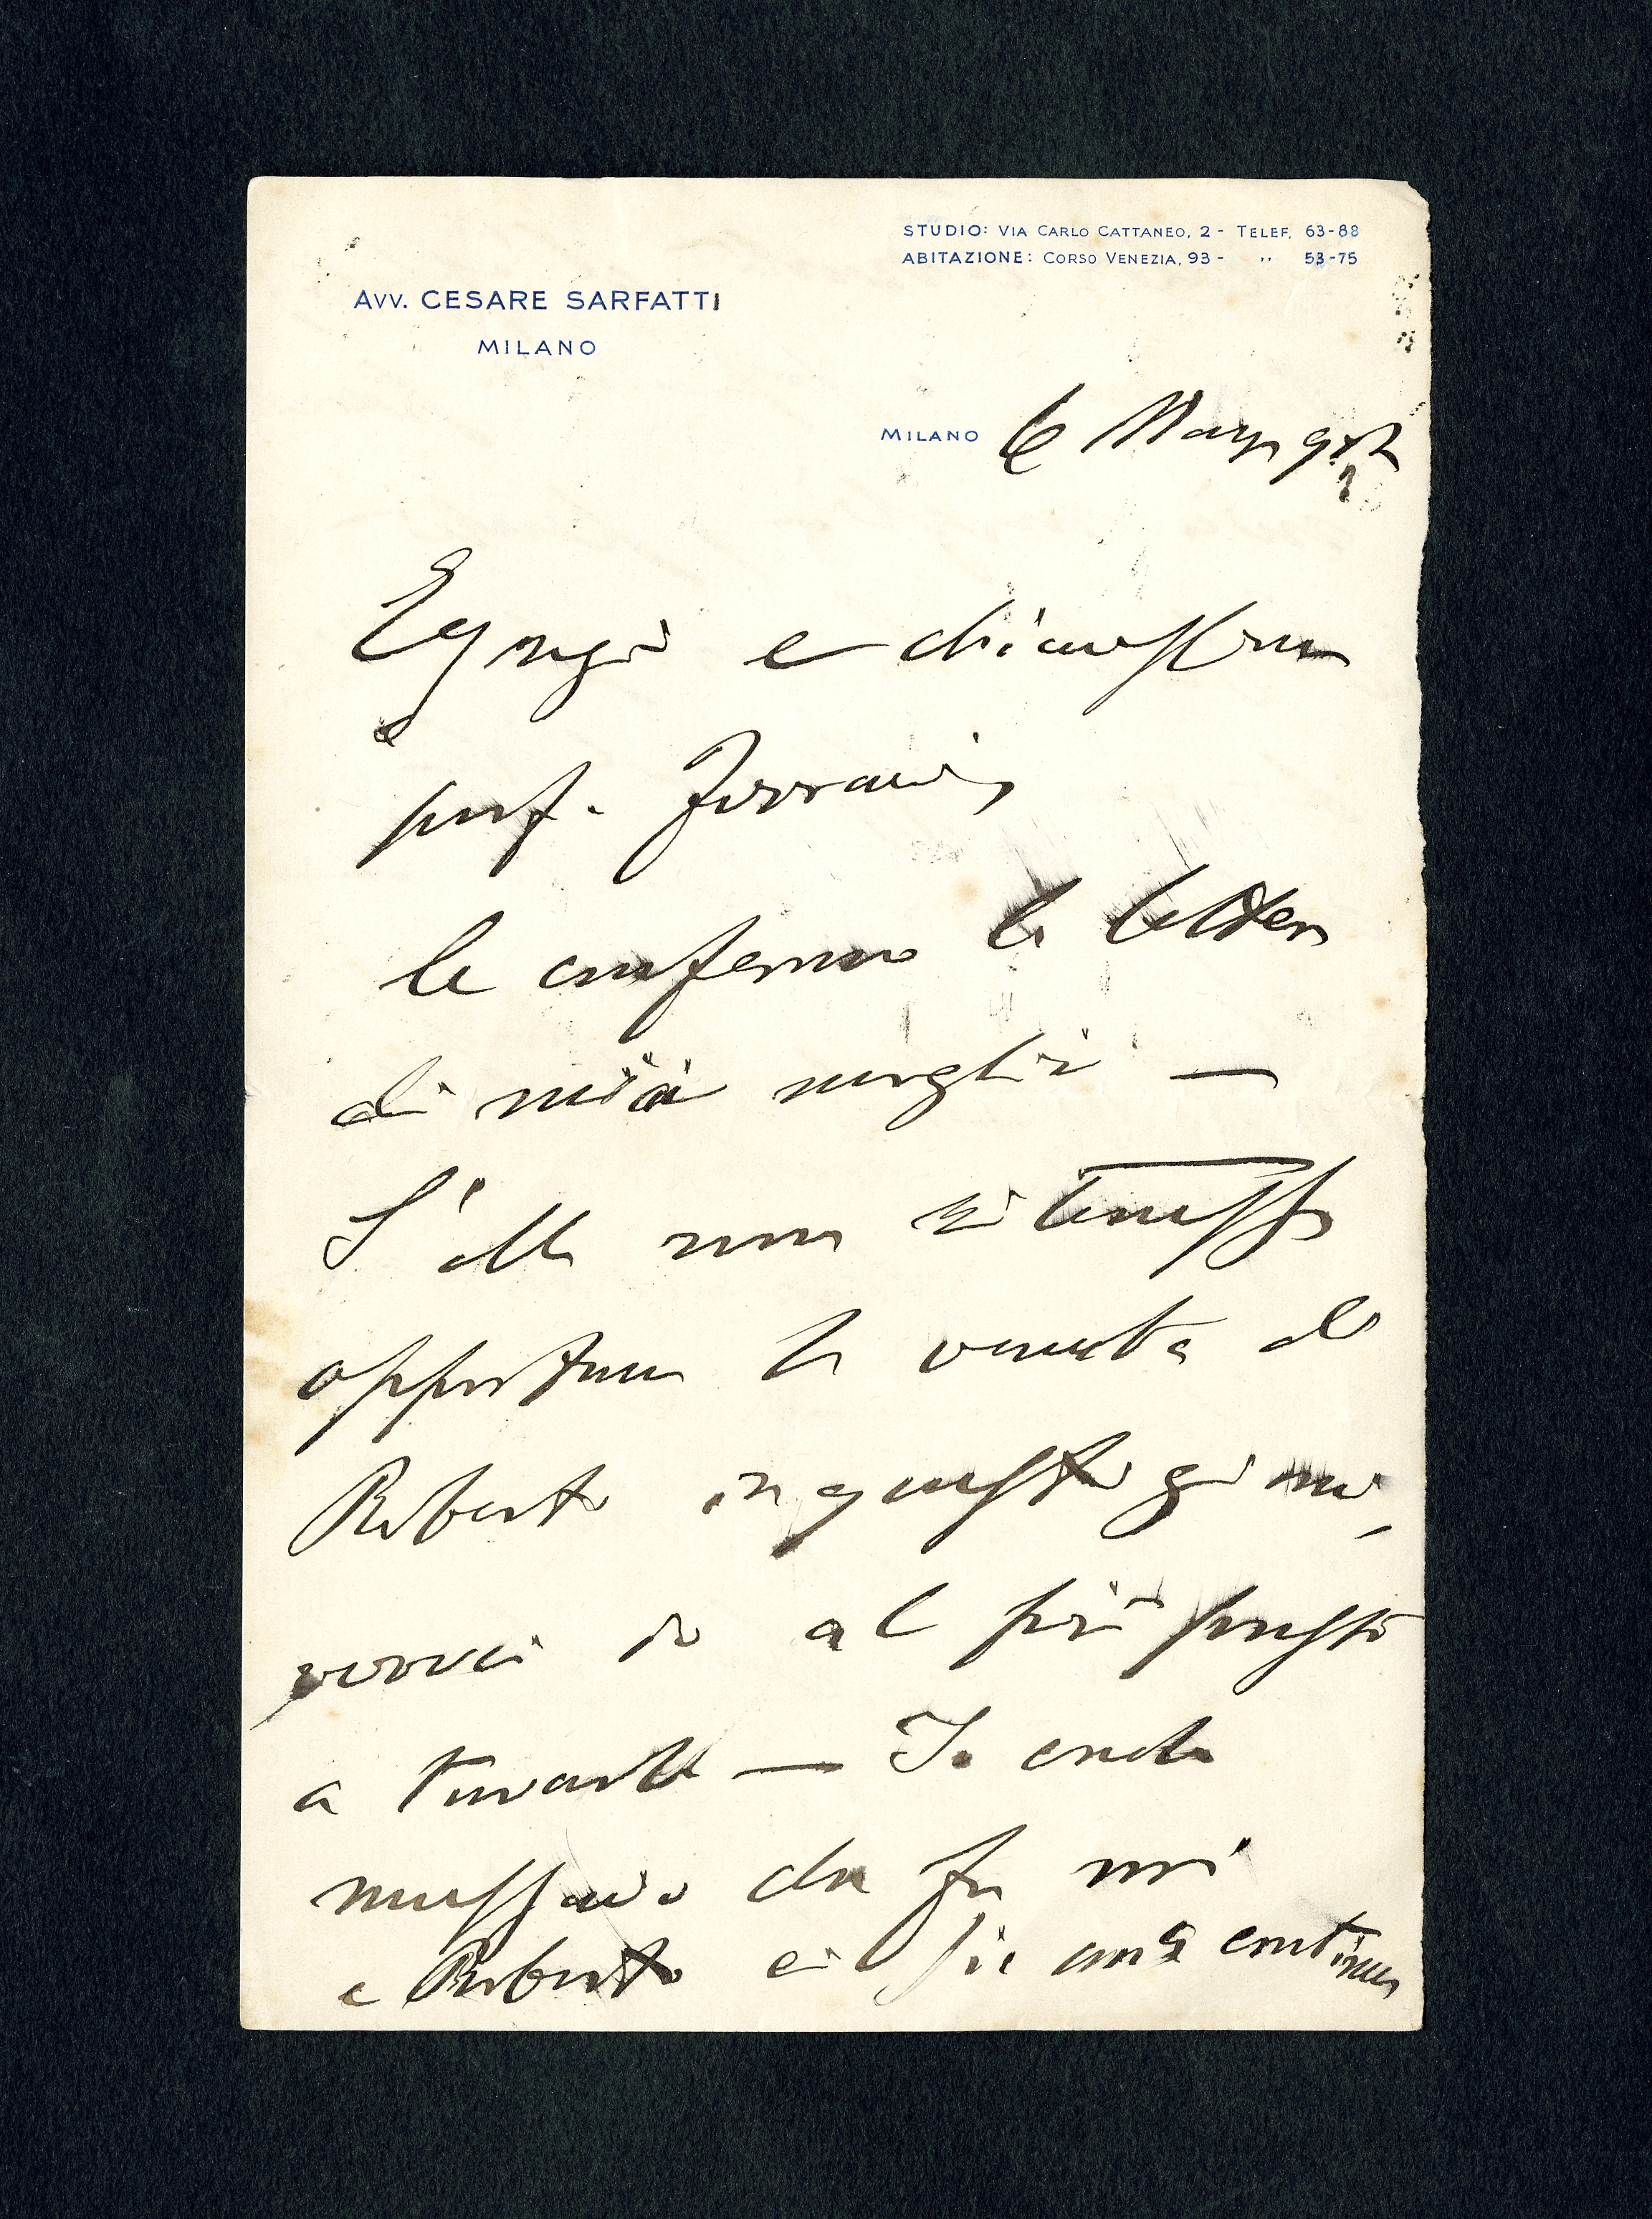 STUDIO: VIA CARLO CATTANEO, 2 - TELEF. 63-88
ABITAZIONE: CORSO VENEZIA, 93 - " 53-75
AVV. CESARE SARFATTI
MILANO
MILANO 6 Marzo
Egregio e chiarissimo
prof. Ferrari,
le confermo la lettera
di mia moglie —
S'ella non ritenesse
opportuna la venuta di
Roberto in questi giorni,
verrei io al più presto
a trovarla — Io credo
necessario che fra noi
e Roberto ci sia una continua